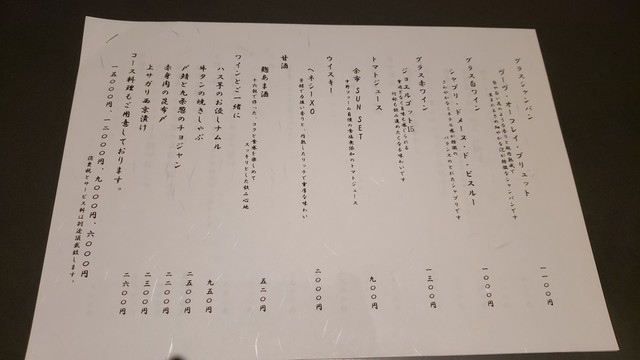 グラスシャンパン
ヴーヴ・オーフレイ・ブリュット
一一〇〇円
グラス白ワイン
シャブリ・ドメーヌ・ド・ビスルー
一〇〇〇円
グラス赤ワイン
ジョエルゴット15
一三〇〇円
トマトジュース
余市 SUN SET
九〇〇円
ウイスキー
ヘネシーXO
二〇〇〇円
甘酒
麹あま酒
スッキリとした飲み心地
五二〇円
ワインと一緒に
ハス芋のお浸しナムル
九五〇円
牛タンの焼きしゃぶ
二五〇〇円
〆鯖と九条葱のチョジャン
二二〇〇円
赤身肉の昆布〆
二三〇〇円
上サガリ西京漬け
二六〇〇円
コース料理もご用意しております。
一五〇〇〇円、一二〇〇〇円、九〇〇〇円、六〇〇〇円
消費税とサービス料は別途頂戴致します。